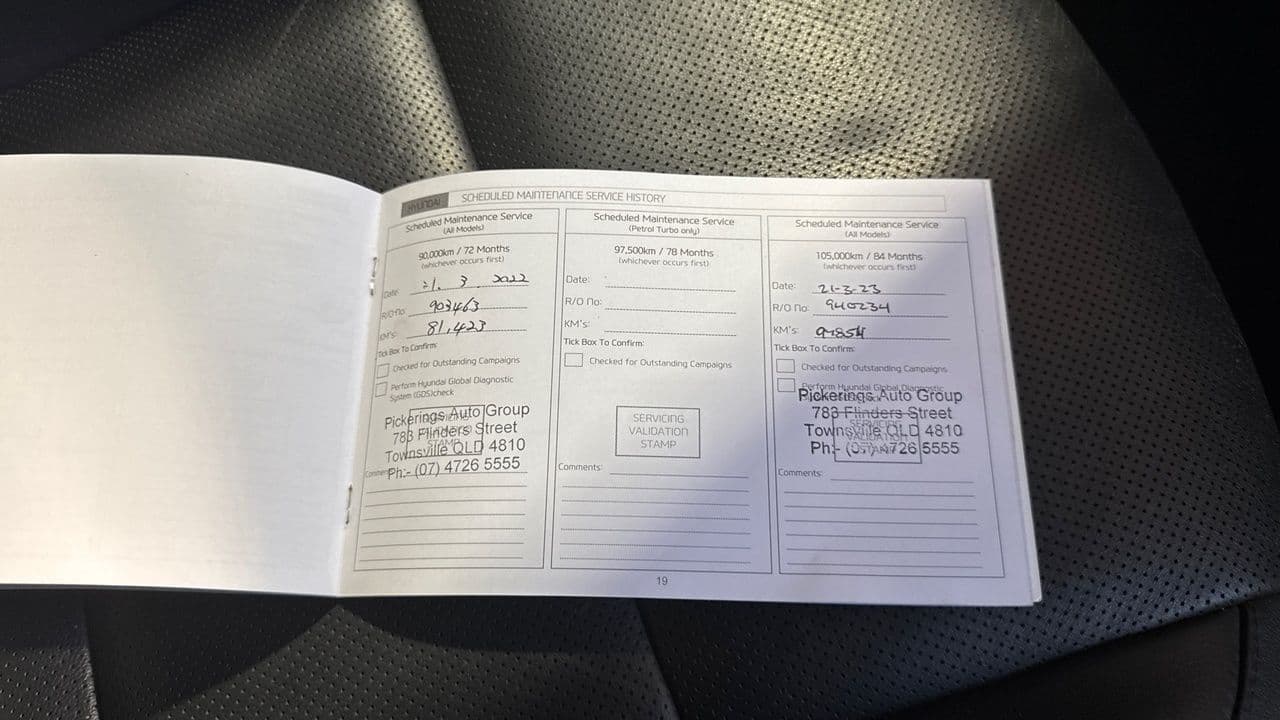 HYUNDAI
SCHEDULED MAINTENANCE SERVICE HISTORY
Scheduled Maintenance Service
(All Models)
90,000km / 72 Months
(whichever occurs first)
Date: 21. 3. 2022
R/O No: 903463
KM's: 81,423
Tick Box To Confirm:
Checked for Outstanding Campaigns
Perform Hyundai Global Diagnostic
System (GDS)check
Pickerings Auto Group
783 Flinders Street
Townsville QLD 4810
Ph:- (07) 4726 5555
Comments:
Scheduled Maintenance Service
(Petrol Turbo only)
97,500km / 78 Months
(whichever occurs first)
Date:
R/O No:
KM's:
Tick Box To Confirm:
Checked for Outstanding Campaigns
SERVICING
VALIDATION
STAMP
Comments:
Scheduled Maintenance Service
(All Models)
105,000km / 84 Months
(whichever occurs first)
Date: 21-3-23
R/O No: 940234
KM's:
Tick Box To Confirm:
Checked for Outstanding Campaigns
Perform Hyundai Global Diagnostic
Pickerings Auto Group
783 Flinders Street
Townsville QLD 4810
Ph:- (07) 4726 5555
Comments:
19